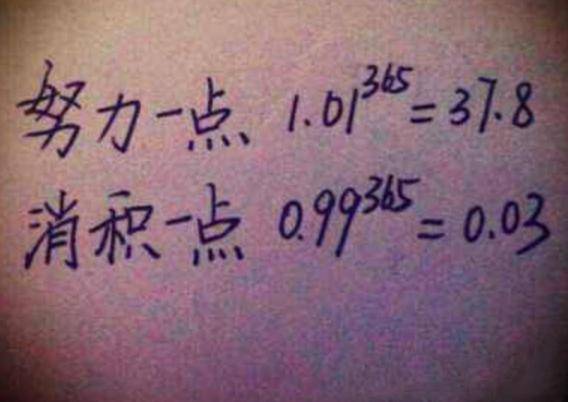 努力一点 1.01³⁶⁵=37.8
消积一点 0.99³⁶⁵=0.03